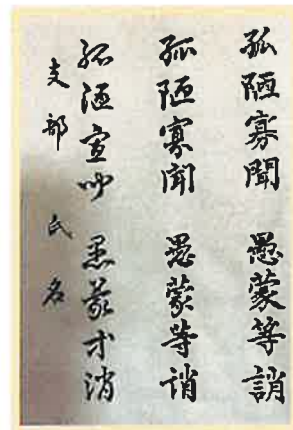 孤陋寡聞 愚蒙等誚
孤陋寡聞 愚蒙等誚
孤陋寡聞 愚蒙等誚
支部 氏名